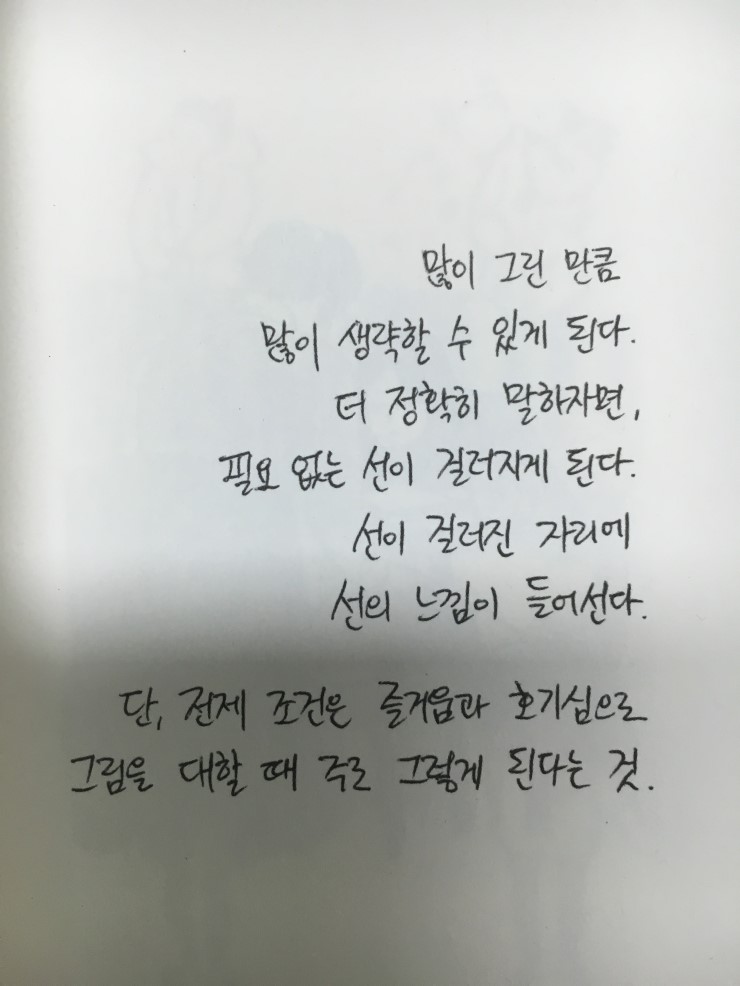 많이 그린 만큼
많이 생략할 수 있게 된다.
더 정확히 말하자면,
필요 없는 선이 걸러지게 된다.
선이 걸러진 자리에
선의 느낌이 들어선다.
단, 전제 조건은 즐거움과 호기심으로
그림을 대할 때 주로 그렇게 된다는 것.